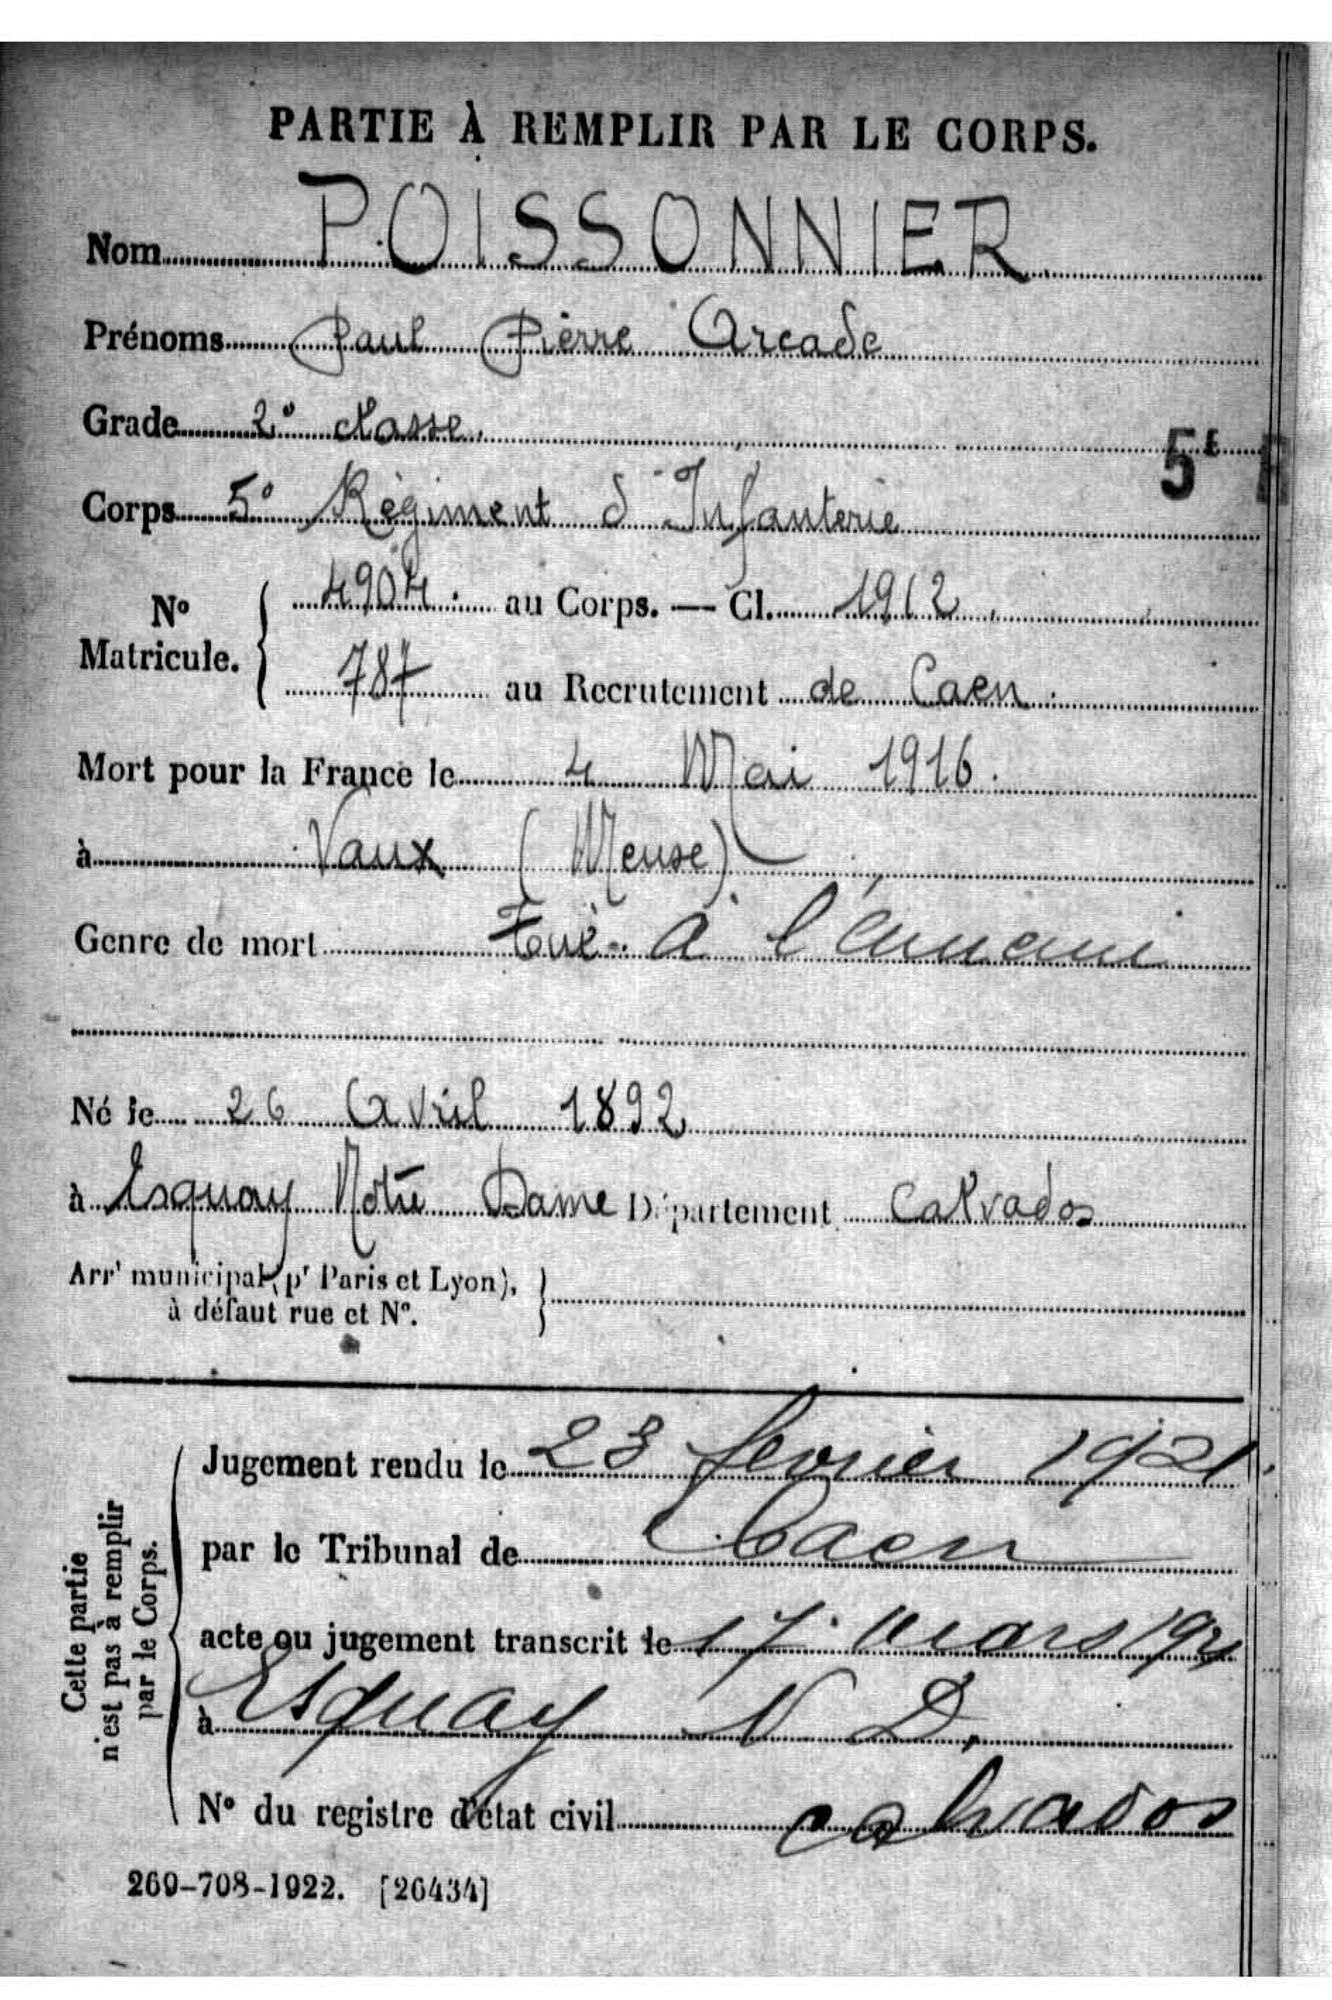 PARTIE À REMPLIR PAR LE CORPS.
Nom POISSONNIER
Prénoms Paul Pierre Arcade
Grade 2e classe.
5E
Corps 5e Régiment d'Infanterie
No Matricule. { 4904. au Corps. — Cl. 1912
787 au Recrutement de Caen.
Mort pour la France le 4 Mai 1916.
à Vaux (Meuse)
Genre de mort Tué à l'ennemi
Né le 26 Avril 1892
à Esquay Notre Dame Département Calvados
Arrt municipal (pr Paris et Lyon),
à défaut rue et No.
Cette partie
n'est pas à remplir
par le Corps.
Jugement rendu le 23 février 1921.
par le Tribunal de Caen
acte ou jugement transcrit le 17 mars 1921
à Esquay N D,
No du registre d'état civil calvados
269-708-1922. [26434]